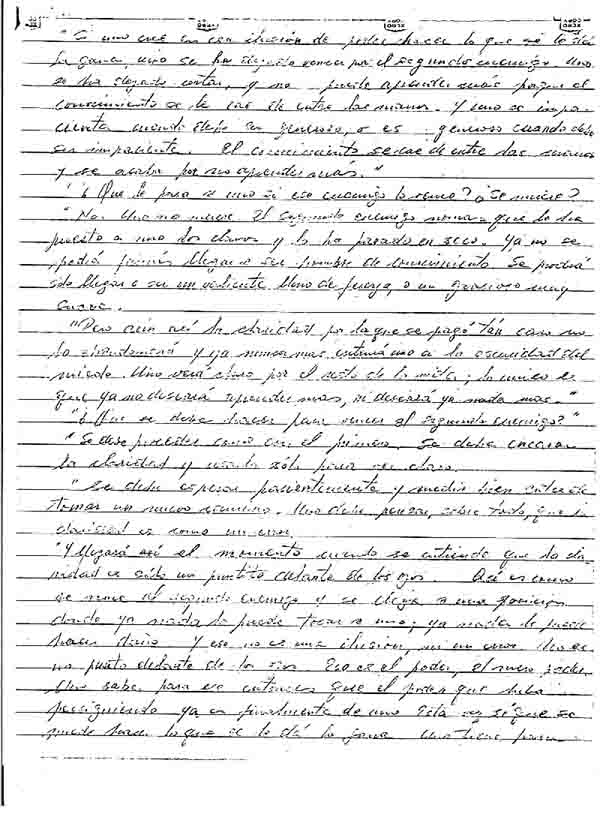 "Si uno cree en esa ilusión de poder hacer lo que se le dá
la gana, uno se ha dejado vencer por el segundo enemigo Uno
se ha dejado y no puede aprender más porque el
conocimiento se le cae de entre las manos. Y uno se impa-
cienta cuando debe ser generoso, o es generoso cuando debe
ser impaciente. El conocimiento se cae de entre las manos
y se acaba por no aprender más."
"¿Que le pasa a uno si ese enemigo lo vence? ¿Se muere?
"No. Uno no muere. El segundo enemigo nomas que le ha
puesto a uno los clavos y lo ha parado en seco. Ya no se
podrá jamás llegar a ser hombre de conocimiento Se podrá
sólo llegar a ser un valiente Uno de fuerza, o un gracioso muy
suave.
"Pero aún así la claridad por la que se pagó tan caro no
lo abandonará y ya nunca mas entrará uno a la oscuridad del
miedo. Uno verá claro por el resto de la vida; lo único es
que ya no deseará aprender mas, ni deseará ya nada mas."
"¿Que se debe hacer para vencer al segundo enemigo?"
"Se debe proceder como con el primero. Se debe encarar
la claridad y usarla sólo para ver claro.
"Se debe esperar pacientemente y medir bien antes de
tomar un nuevo camino. Uno debe pensar, sobre todo, que la
claridad es como un error.
"Y llegará así el momento cuando se entiende que la cla-
ridad es sólo un puntito delante de los ojos. Asi es como
se vence al segundo enemigo y se llega a una posicion
donde ya nada lo puede tocar a uno; ya nada le puede
hacer daño Y eso no es una ilusion, ni un error. No es
un punto delante de los ojos Eso es el poder, el mero poder.
Uno sabe para ese entonces que el poder que había
persiguiendo ya es finalmente de uno Esta vez sí que se
puede hacer lo que se le dá la gana Uno tiene